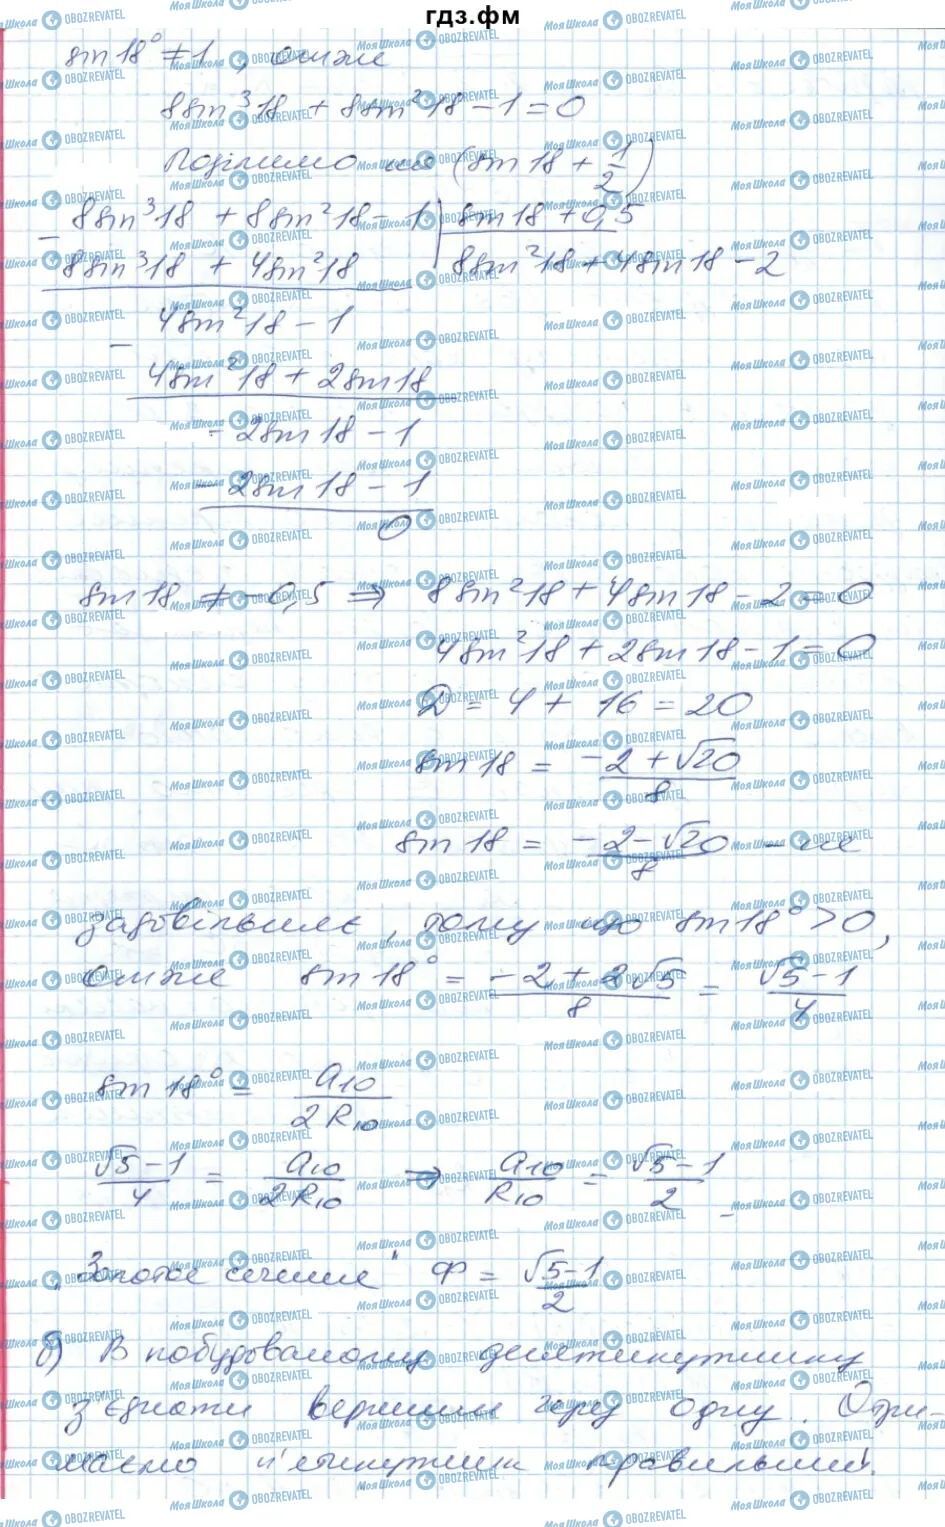 гдз.фм
sin 18° ≠ 1, отже
8sin³18 + 8sin²18 − 1 = 0
Поділимо на (sin 18 + 1/2)
8sin³18 + 8sin²18 − 1 | sin 18 + 0,5
8sin³18 + 4sin²18 | 8sin²18 + 4sin18 − 2
4sin²18 − 1
4sin²18 + 2sin18
− 2sin 18 − 1
− 2sin 18 − 1
0
sin 18 ≠ −0,5 ⇒ 8sin²18 + 4sin18 − 2 = 0
4sin²18 + 2sin18 − 1 = 0
D = 4 + 16 = 20
sin 18 = (−2 + √20)/8
sin 18 = (−2 − √20)/8 – не
задовільняє, тому що sin 18° > 0,
отже sin 18° = (−2 + 2√5)/8 = (√5 − 1)/4
sin 18° = a₁₀/2R₁₀
(√5 − 1)/4 = a₁₀/2R₁₀ ⇒ a₁₀/R₁₀ = (√5 − 1)/2
„Золотое сечение“ Ф = (√5 − 1)/2
б) В побудованому десятикутнику
з'єднати вершини через одну. Отри-
маємо п'ятикутник правильний.
Моя Школа OBOZREVATEL